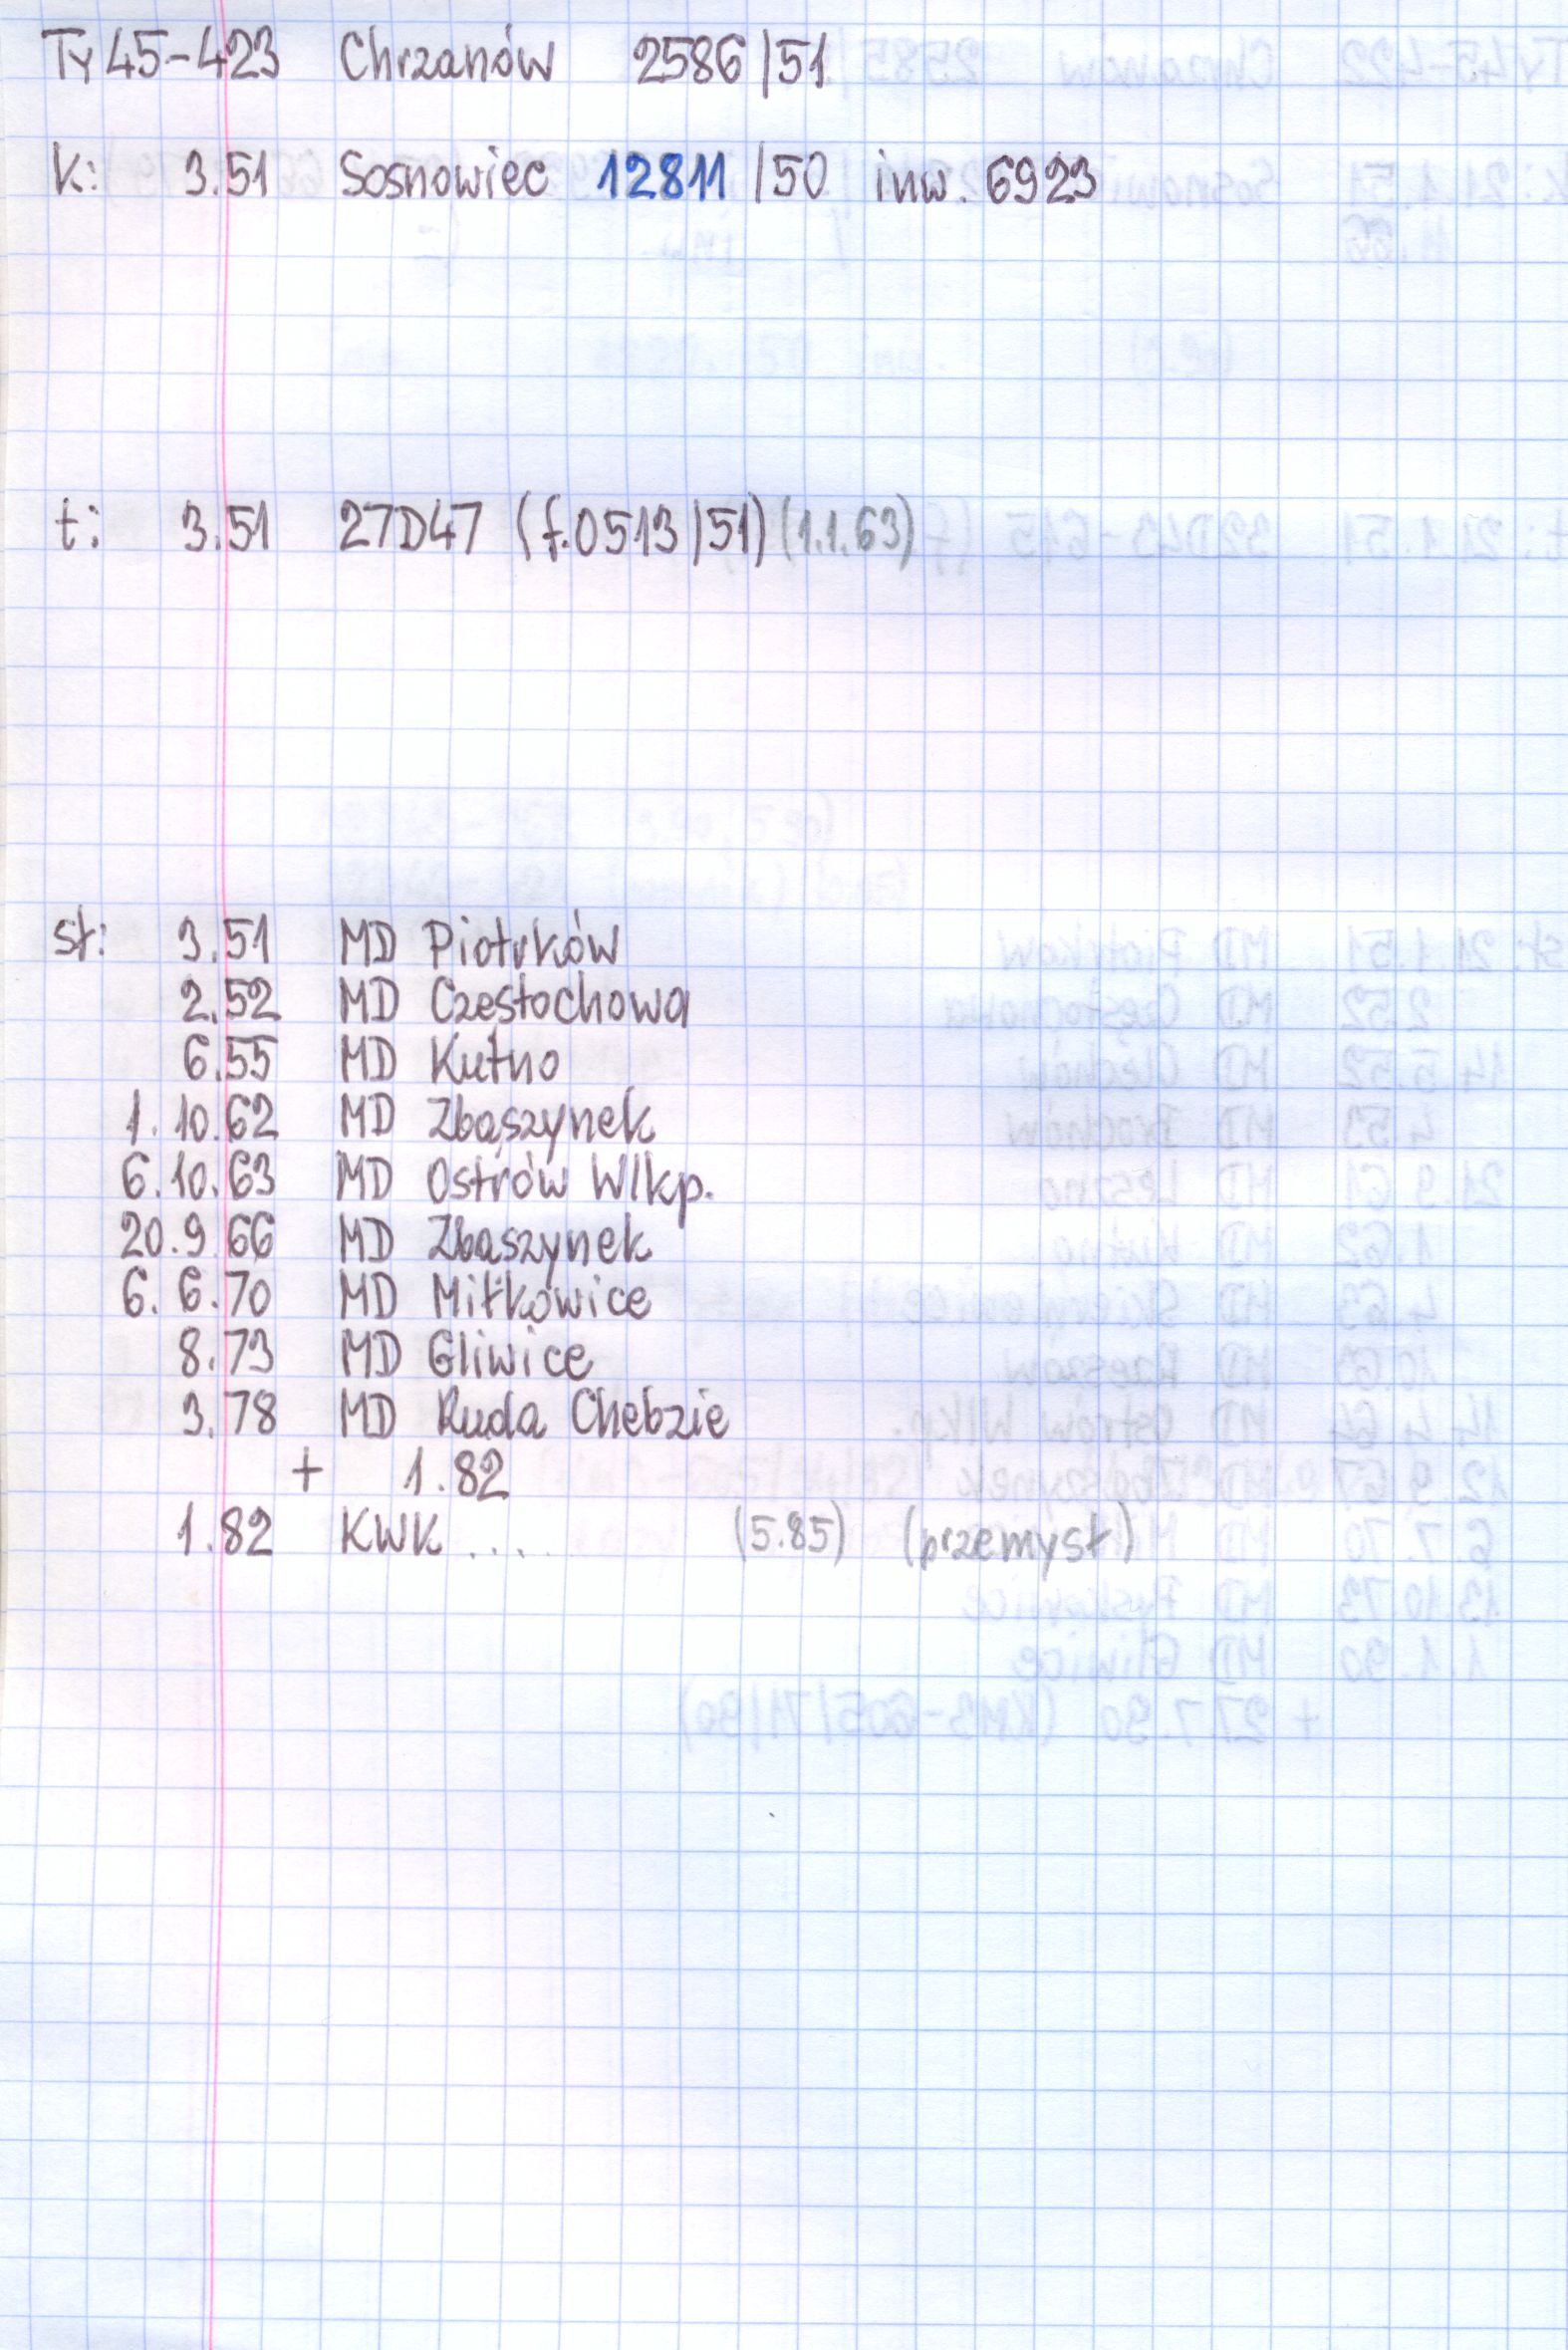 Ty45-423 Chrzanów 2586/51
k: 3.51 Sosnowiec 12811/50 inw. 6923
t: 3.51 27D47 (f.0513/51) (1.1.63)
st: 3.51 MD Piotrków
2.52 MD Częstochowa
6.55 MD Kutno
1.10.62 MD Zbąszynek
6.10.63 MD Ostrów Wlkp.
20.9.66 MD Zbąszynek
6.6.70 MD Miłkowice
8.73 MD Gliwice
3.78 MD Ruda Chebzie
+ 1.82
1.82 KWK .... (5.85) (przemysł)